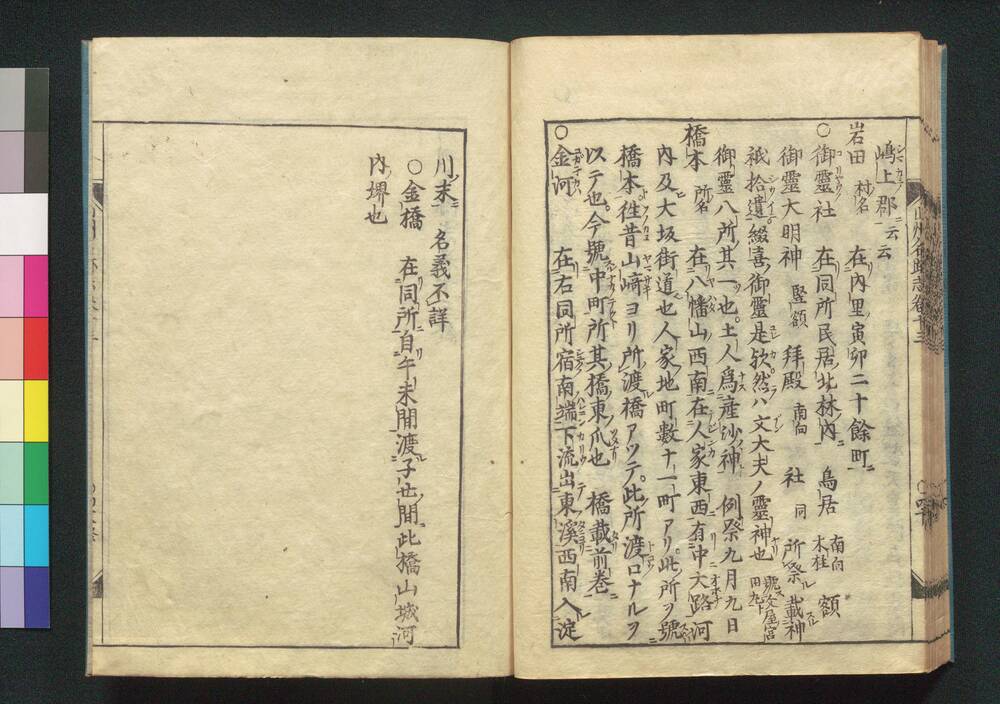 嶋上郡ニ云云
岩田 村名 在内里寅卯二十餘町
○御靈社 在同所民居北林内 鳥居 南向 木柱 額
御靈大明神 竪額 拜殿 南向 社 同 所祭載神
祇拾遺綴喜御靈是欤然ハ文大夫ノ靈神也 號文屋宮田丸
御靈八所其一也土人爲産沙神 例祭九月九日
橋本 所名 在八幡山西南在人家東西有中大路河
内及大坂街道也人家地町數十一町アリ此所ヲ號
橋本徃昔山﨑ヨリ所渡橋アツテ此所渡口ナルヲ
以テ也今號中町所其橋東爪也 橋載前巻
○金河 在右同所宿南端下流出東溪西南入淀
川末 名義不詳
○金橋 在同所自午未間渡子丑間此橋山城河
内堺也
山州名跡志巻十三